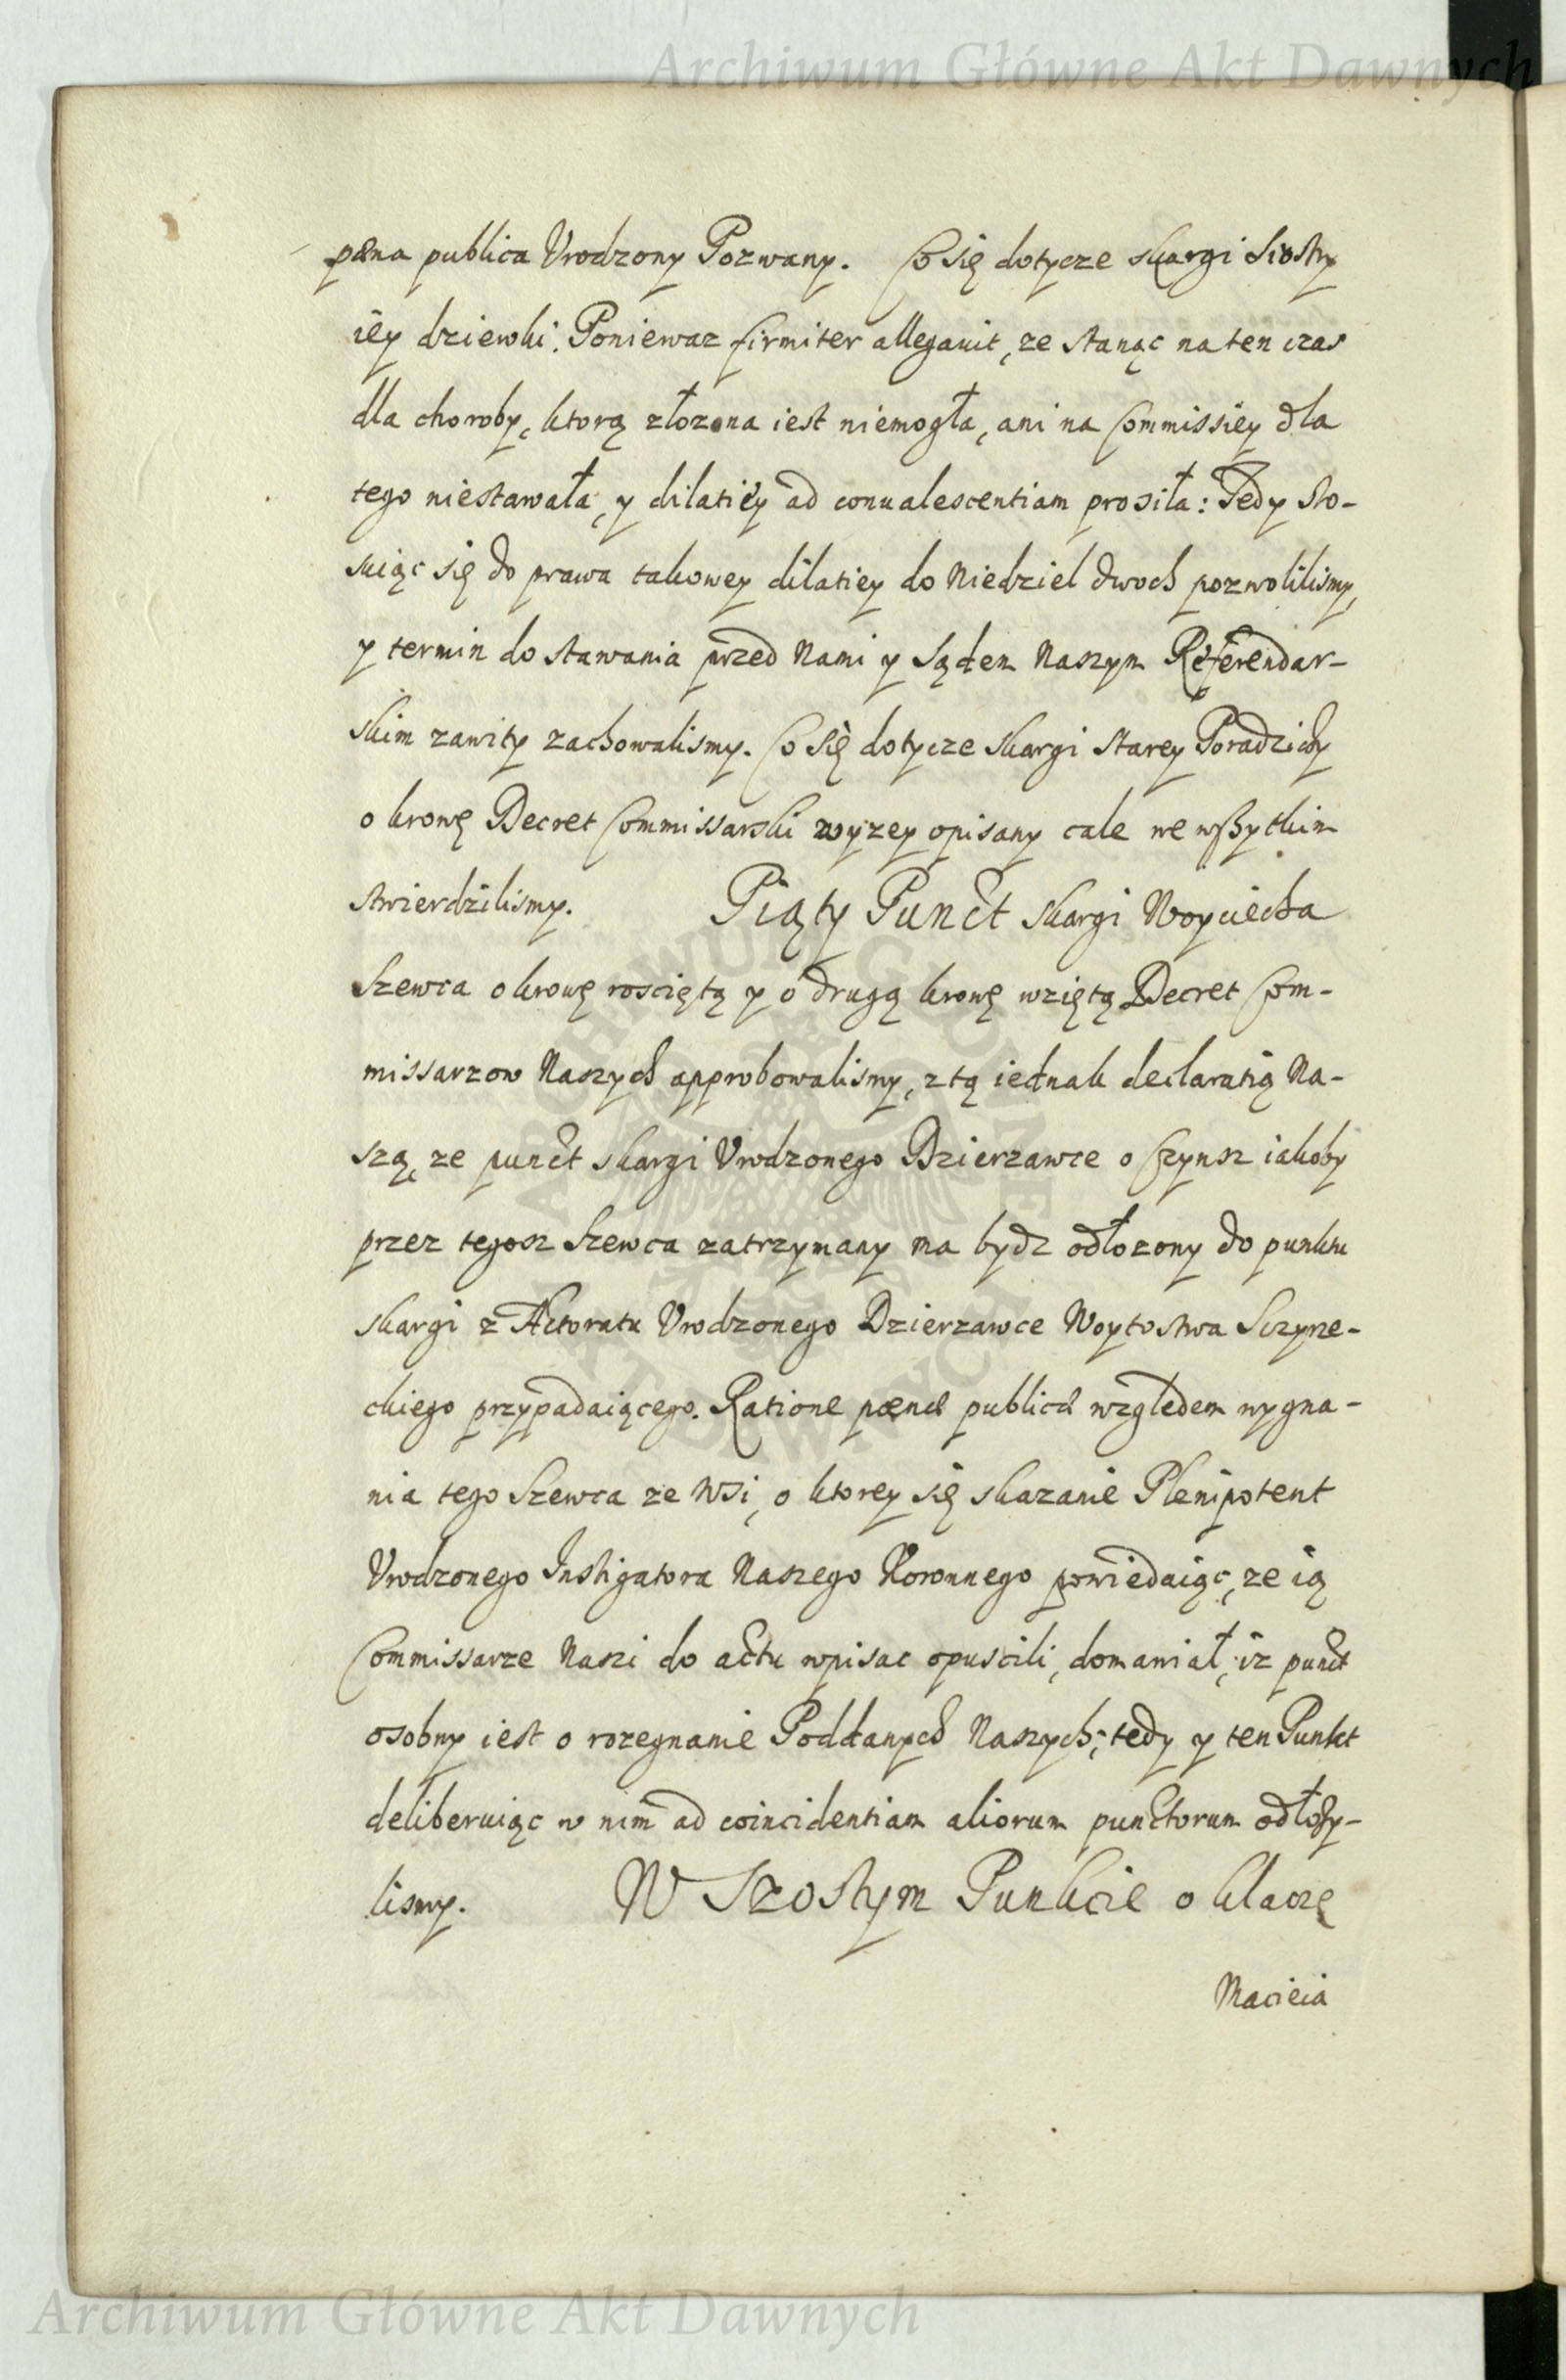 Archiwum Główne Akt Dawnych
pæna publica Urodzony Pozwany. Co się dotycze skargi siostry
iey dziewki. Poniewaz firmiter allegauit, ze stanąc na ten czas
dla choroby, ktorą złozona iest niemogła, ani na Commissiey dla
tego niestawała, y dilatiey ad conualescentiam prosiła: Tedy sto-
suiąc się do prawa takowey dilatiey do Niedziel dwoch pozwolilismy,
y termin do stawania przed Nami y Sądem Naszym Referendar-
skim zawity zachowalismy. Co się dotycze skargi starey Poradzichy
o krowę Decret Commissarski wyzey opisany cale we wszytkim
stwierdzilismy. Piąty Punct skargi Woyciecha
Szewca o krowę rosciętą y o drugą krowę wziętą Decret Com-
missarzow Naszych approbowalismy, z tą iednak declaratią Na-
szą, ze punct skargi Urodzonego Dzierzawce o Czynsz iakoby
przez tegosz Szewca zatrzymany ma bydz odłozony do punktu
skargi z Actoratu Urodzonego Dzierzawce Woytostwa Sczyrze-
ckiego przypadaiącego. Ratione pænæ publicæ względem wygna-
nia tego Szewca ze Wsi, o ktorey się skazanie Plenipotent
Urodzonego Instigatora Naszego Koronnego powiedaiąc, ze ią
Commissarze Naszi do actu wpisac opuscili, domawiał, iz punct
osobny iest o rozegnanie Poddanych Naszych; tedy y ten Punkt
deliberuiąc w nim ad coincidentiam aliorum punctorum odłozy-
lismy. W Szostym Punkcie o klaczę
Macieia
ARCHIWUM GŁÓWNE AKT DAWNYCH
Archiwum Główne Akt Dawnych